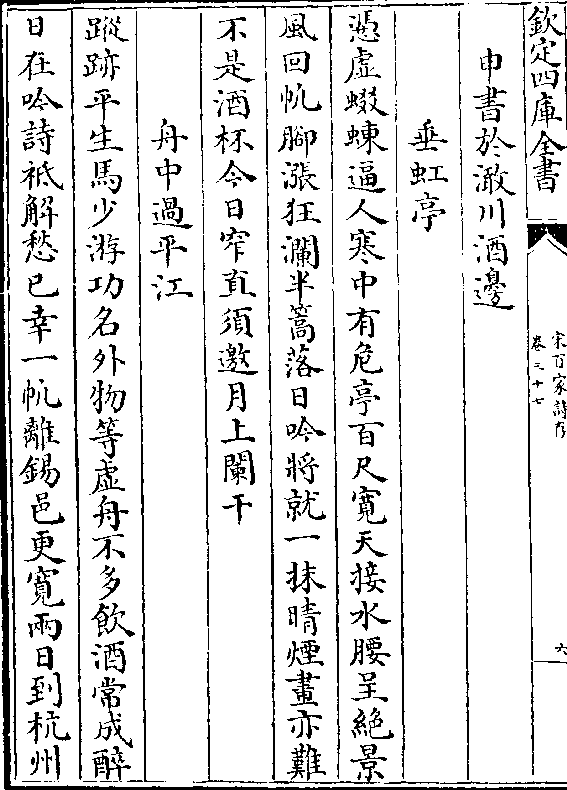 欽定四庫全書
宋百家詩存
卷三十七
六
申書於澉川酒邊
垂虹亭
憑虛蝃蝀逼人寒中有危亭百尺寬天接水腰呈絕景
風回帆腳漲狂瀾半篙落日吟將就一抹晴煙畫亦難
不是酒杯今日窄直須邀月上闌干
舟中過平江
蹤跡平生馬少游功名外物等虛舟不多飲酒常成醉
日在吟詩祇解愁已幸一帆離錫邑更寬兩日到杭州